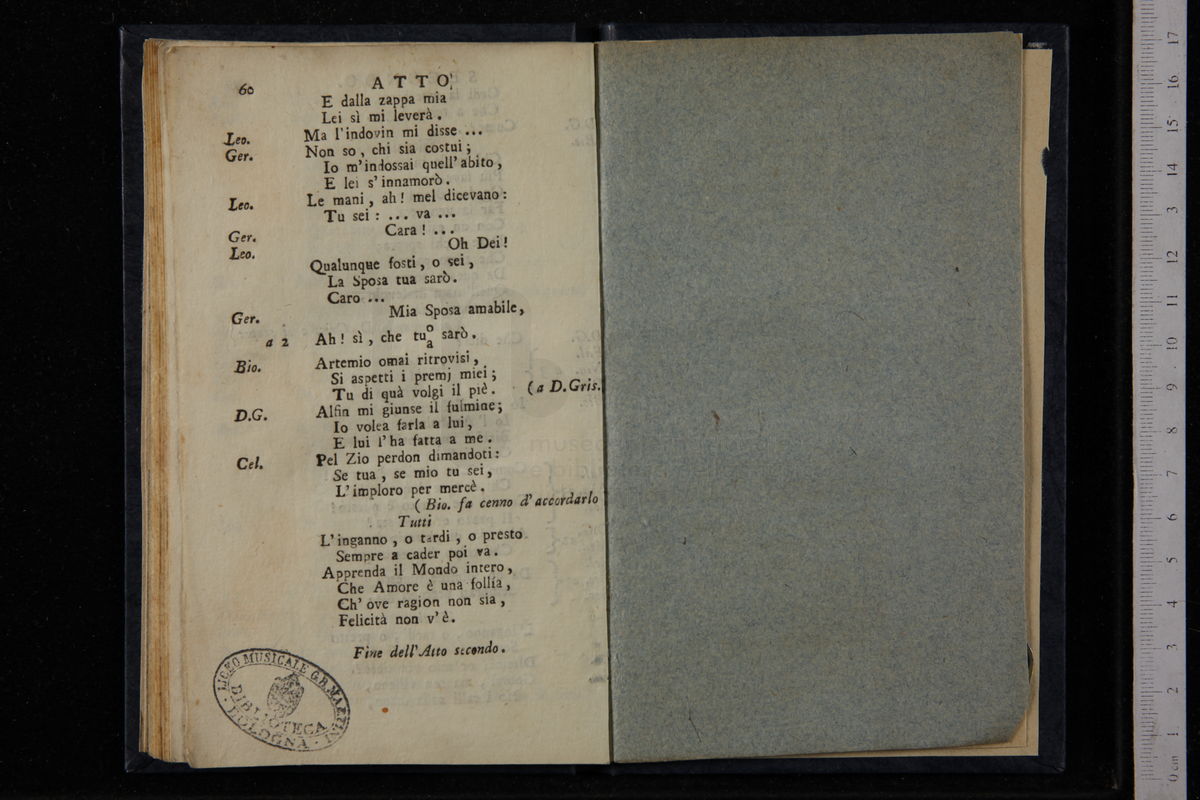 60 ATTO
E dalla zappa mia
Lei sì mi leverà.
Leo. Ma l'indovin mi disse ...
Ger. Non so, chi sia costui;
Io m'indossai quell' abito,
E lei s'innamorò.
Leo. Le mani, ah! mel dicevano:
Tu sei: ... va ...
Ger. Cara! ...
Leo. Oh Dei!
Qualunque fosti, o sei,
La Sposa tua sarò.
Caro ...
Ger. Mia Sposa amabile,
a 2 Ah! sì, che tu o/a sarò.
Bio. Artemio omai ritrovisi,
Si aspetti i premj miei;
Tu di quà volgi il piè. (a D. Gris.
D.G. Alfin mi giunse il fulmine;
Io volea farla a lui,
E lui l'ha fatta a me.
Cel. Pel Zio perdon dimandoti:
Se tua, se mio tu sei,
L'imploro per mercè.
(Bio. fa cenno d'accordarlo
Tutti
L'inganno, o tardi, o presto
Sempre a cader poi va.
Apprenda il Mondo intero,
Che Amore è una follía,
Ch' ove ragion non sia,
Felicità non v'è.
Fine dell'Atto secondo.
LICEO MUSICALE G.B. MARTINI
BIBLIOTECA
BOLOGNA
0 cm 1 2 3 4 5 6 7 8 9 10 11 12 13 14 15 16 17